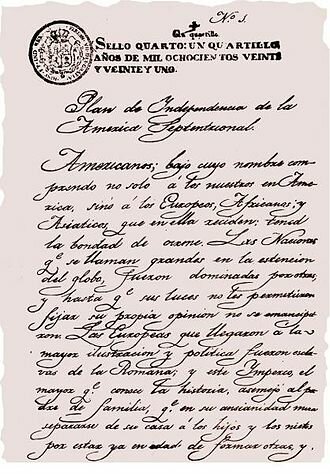 Nº 1.
Un quartillo
SELLO QUARTO: UN QUARTILLO,
AÑOS DE MIL OCHOCIENTOS VEINTE
Y VEINTE Y UNO.
Plan de Independencia de la
America Septentrional.
Americanos; bajo cuyo nombre com-
prendo no solo á los nacidos en Ame-
rica, sinó á los Europeos, Africanos, y
Asiaticos, que en ella residen: tened
la bondad de oirme. Las Naciones
q.e se llaman grandes en la estencion
del globo, fueron dominadas por otras,
y hasta q.e sus luces no les permitieron
fijar su propia opinion no se emancipa-
ron. Las Europeas que llegaron á la
mayor ilustracion y politica fueron escla-
vas de la Romana; y este Imperio, el
mayor q.e conoce la historia, asemejó al pa-
dre de familia, q.e en su ancianidad mira
separarse de su casa á los hijos y los nietos
por estar ya en edad de formar otras, y